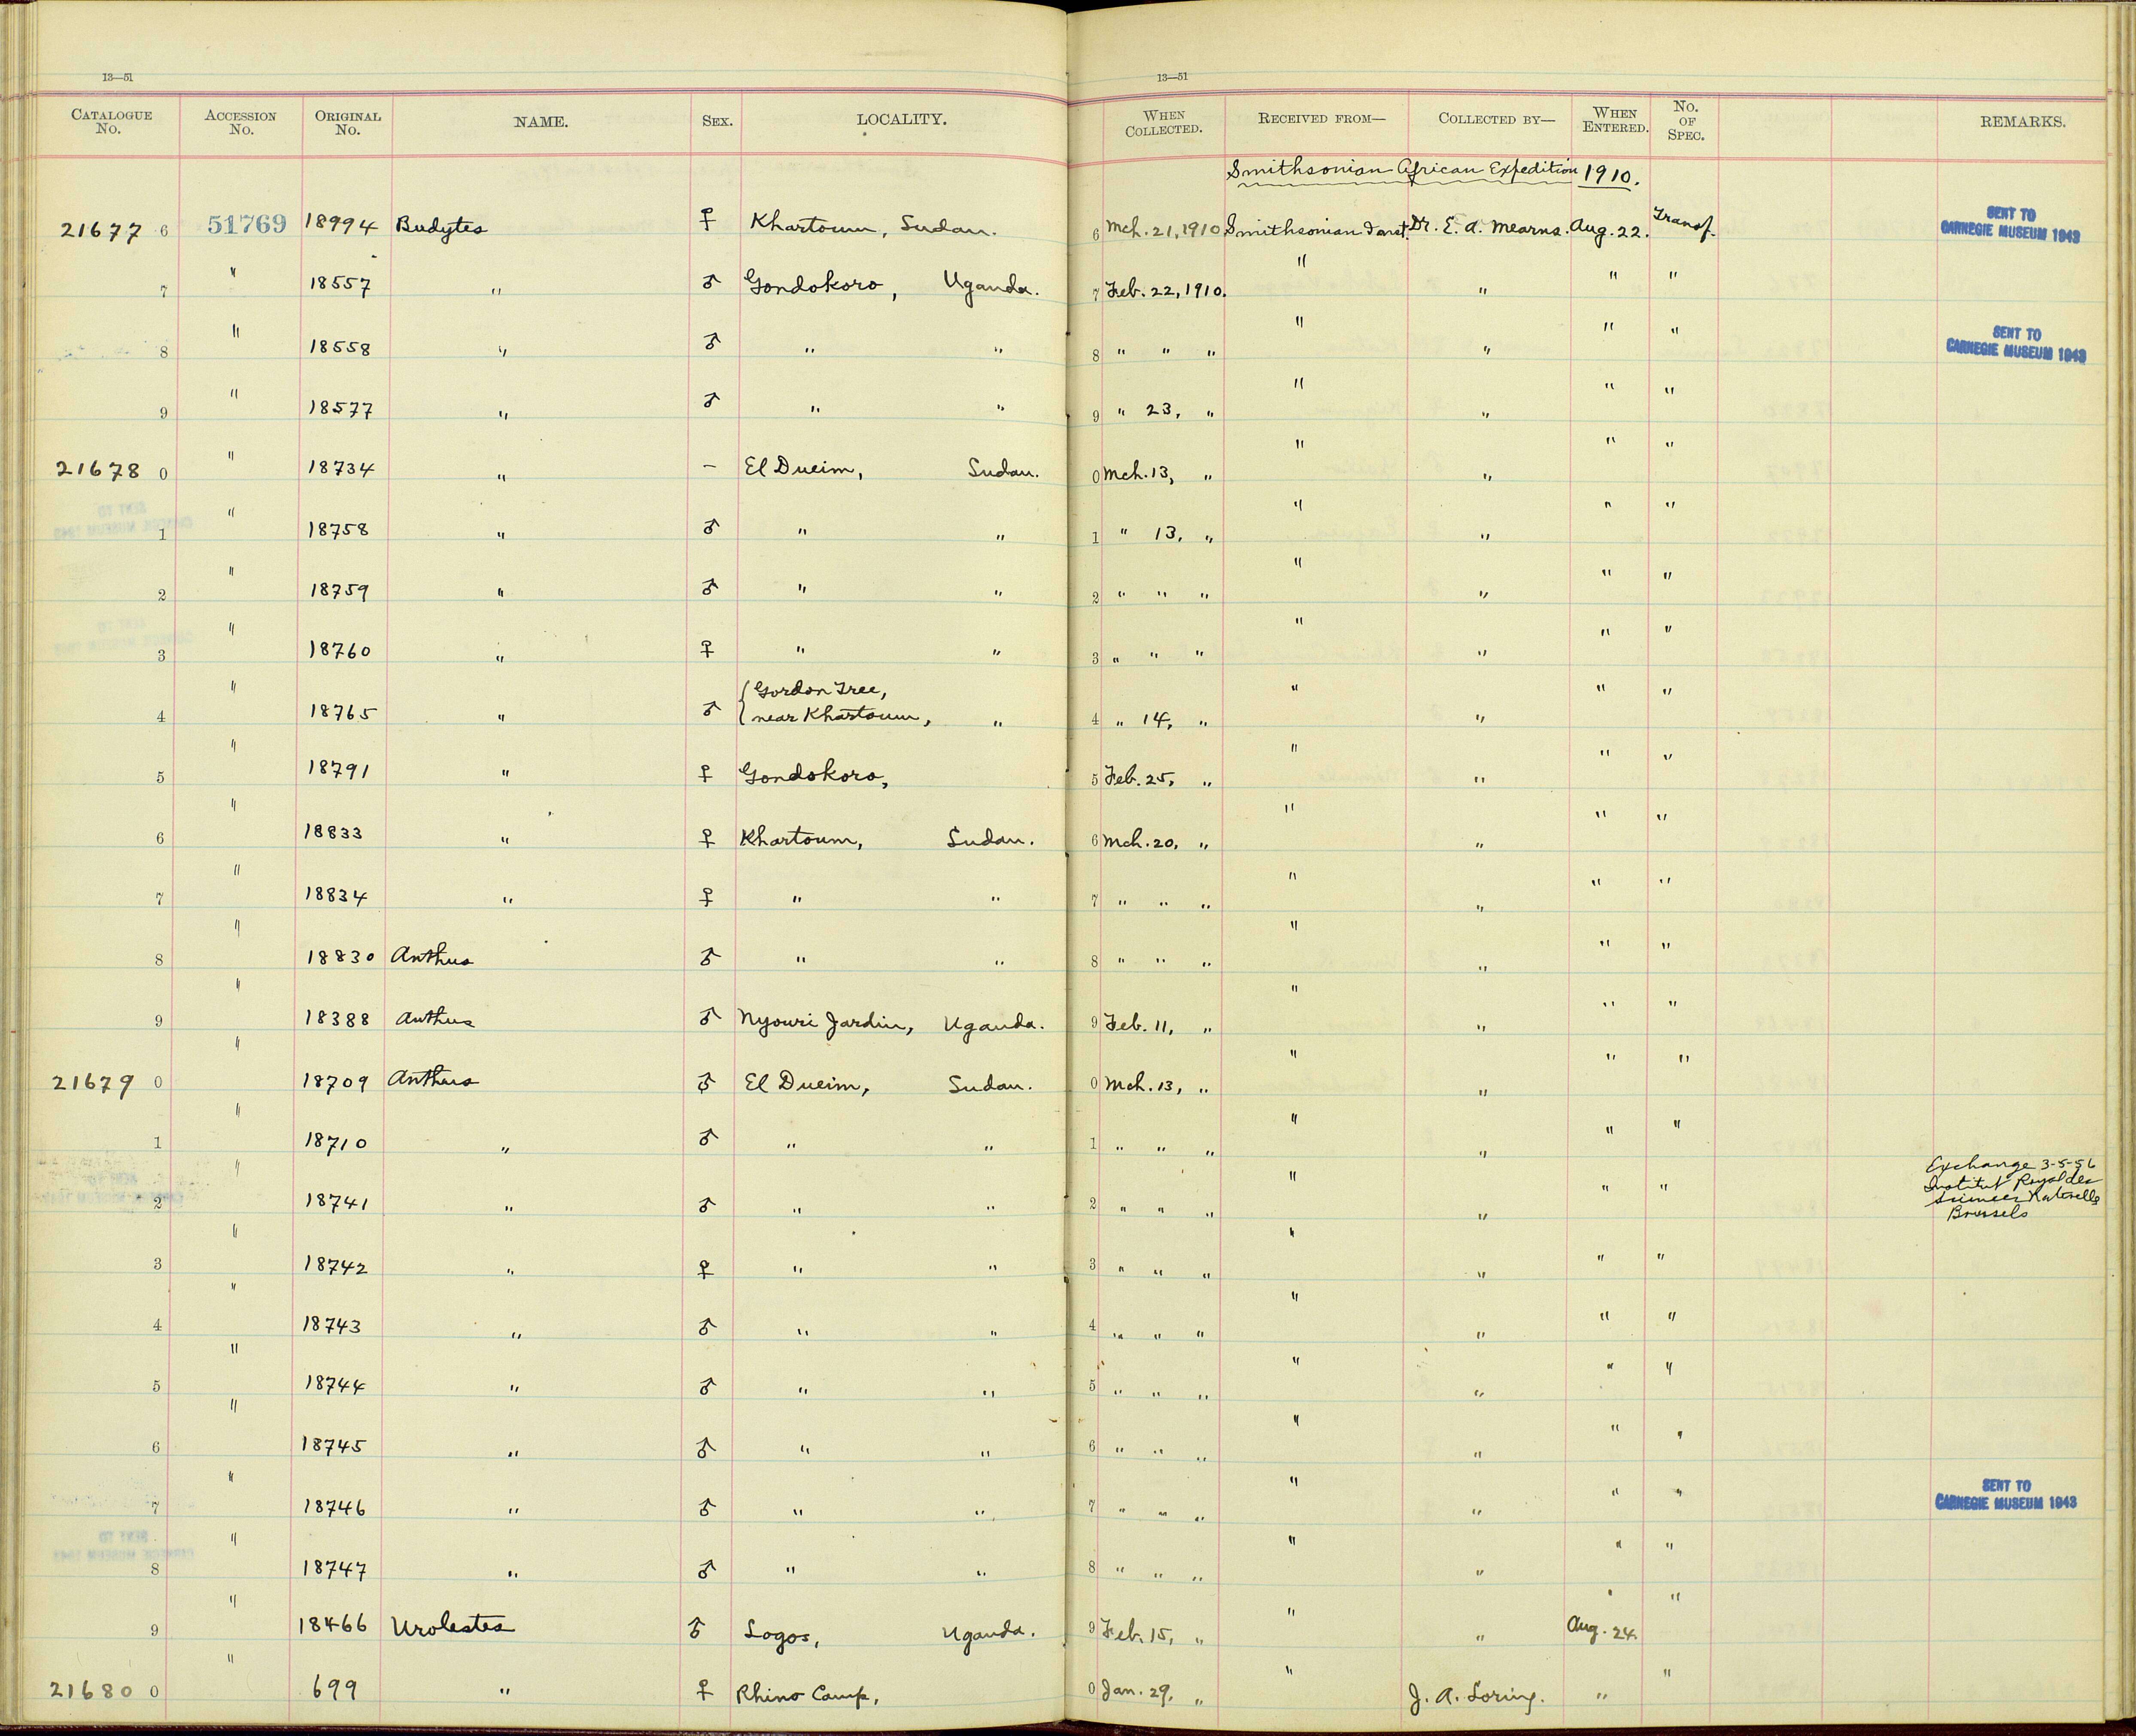 13—51
13—51
CATALOGUE No. ACCESSION No. ORIGINAL No. NAME. SEX. LOCALITY. WHEN COLLECTED. RECEIVED FROM— COLLECTED BY— WHEN ENTERED. No. OF SPEC. REMARKS.
Smithsonian African Expedition 1910.
21677 6 51769 18994 Budytes ♀ Khartoum, Sudan. 6 Mch. 21, 1910 Smithsonian Inst. Dr. E. A. Mearns. Aug. 22. Transf. SENT TO CARNEGIE MUSEUM 1943
7 " 18557 " ♂ Gondokoro, Uganda. 7 Feb. 22, 1910. " " " "
8 " 18558 " ♂ " " 8 " " " " " " " SENT TO CARNEGIE MUSEUM 1943
9 " 18577 " ♂ " " 9 " 23, " " " " "
21678 0 " 18734 " – El Dueim, Sudan. 0 Mch. 13, " " " " "
1 " 18758 " ♂ " " 1 " 13, " " " " "
2 " 18759 " ♂ " " 2 " " " " " " "
3 " 18760 " ♀ " " 3 " " " " " " "
4 " 18765 " ♂ { Gordon Tree, near Khartoum, " 4 " 14, " " " " "
5 " 18791 " ♀ Gondokoro, 5 Feb. 25, " " " " "
6 " 18833 " ♀ Khartoum, Sudan. 6 Mch. 20, " " " " "
7 " 18834 " ♀ " " 7 " " " " " " "
8 " 18830 Anthus ♂ " " 8 " " " " " " "
9 " 18388 Anthus ♂ Nyouri Jardin, Uganda. 9 Feb. 11, " " " " "
21679 0 " 18709 Anthus ♂ El Dueim, Sudan. 0 Mch. 13, " " " " "
1 " 18710 " ♂ " " 1 " " " " " " "
2 " 18741 " ♂ " " 2 " " " " " " " Exchange 3-5-56 Institut Royal des Sciences Naturelles Brussels
3 " 18742 " ♀ " " 3 " " " " " " "
4 " 18743 " ♂ " " 4 " " " " " " "
5 " 18744 " ♂ " " 5 " " " " " " "
6 " 18745 " ♂ " " 6 " " " " " " "
7 " 18746 " ♂ " " 7 " " " " " " " SENT TO CARNEGIE MUSEUM 1943
8 " 18747 " ♂ " " 8 " " " " " " "
9 " 18466 Urolestes ♂ Logos, Uganda. 9 Feb. 15, " " " Aug. 24. "
21680 0 " 699 " ♀ Rhino Camp, 0 Jan. 29, " " J. A. Loring. " "